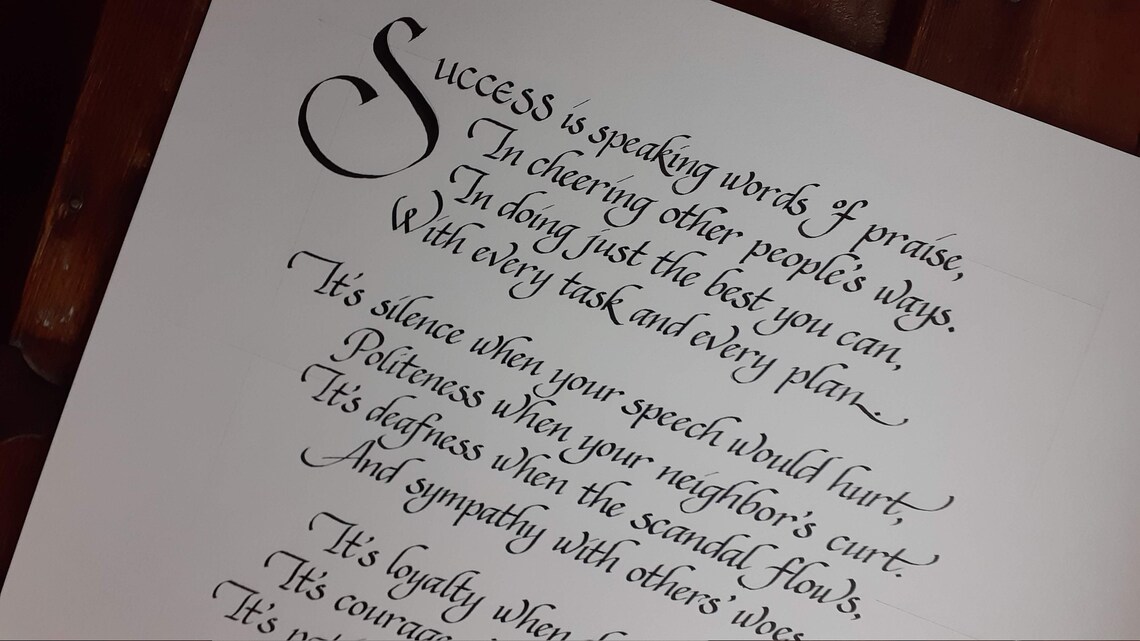 Success is speaking words of praise,
In cheering other people's ways.
In doing just the best you can,
With every task and every plan.
It's silence when your speech would hurt,
Politeness when your neighbor's curt.
It's deafness when the scandal flows,
And sympathy with others' woes
It's loyalty when
It's courage
It's